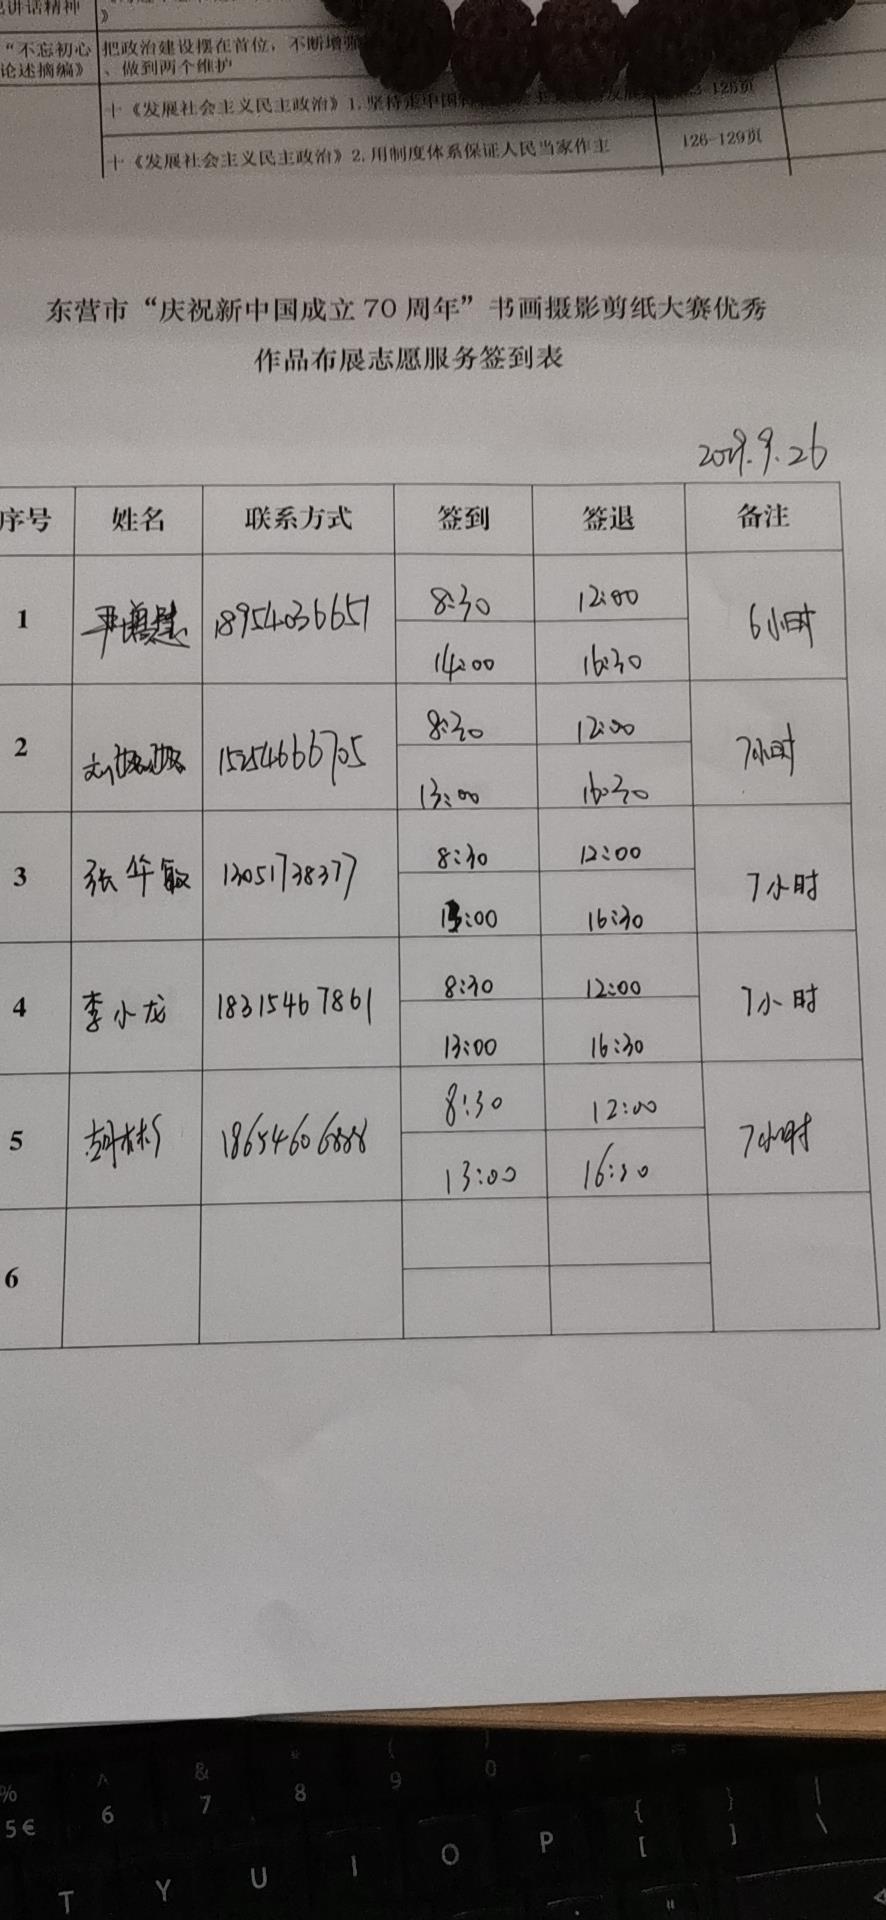 记讲话精神
》
“不忘初心 把政治建设摆在首位，不断增强
论述摘编》 、做到两个维护
十《发展社会主义民主政治》1.坚持走中国
十《发展社会主义民主政治》2.用制度体系保证人民当家作主 126-129页
东营市“庆祝新中国成立 70 周年”书画摄影剪纸大赛优秀
作品布展志愿服务签到表
2019.9.26
序号 姓名 联系方式 签到 签退 备注
1 18954036651 8:30 12:00 6小时
14:00 16:30
2 15254666705 8:30 12:00 7小时
13:00 16:30
3 张华敏 13051738377 8:30 12:00 7小时
13:00 16:30
4 李小龙 18315467861 8:30 12:00 7小时
13:00 16:30
5 胡彬 18654606888 8:30 12:00 7小时
13:00 16:30
6
% ^ & * ( ) _ =
5 € 6 7 8 9 0
T Y U I O P { [ } ] | \